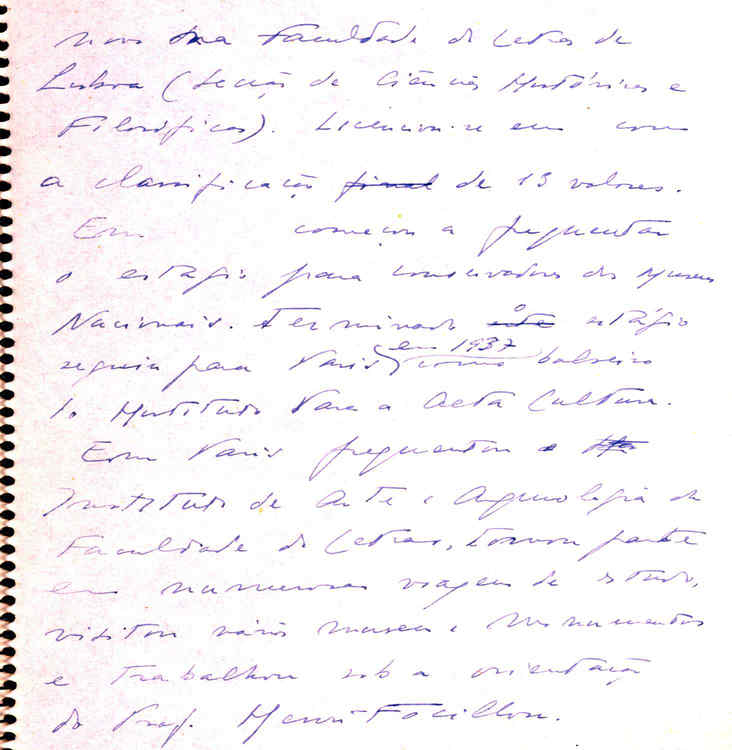 na Faculdade de Letras de
Lisboa (Secção de Ciências Históricas e
Filosóficas). Licenciou-se em com
a classificação final de 13 valores.
Em começou a frequentar
o estágio para conservadores dos Museus
Nacionais. Terminado o estágio
em 1937
seguiu para Paris como bolseiro
do Instituto Para a Alta Cultura.
Em Paris frequentou o
Instituto de Arte e Arqueologia da
Faculdade de Letras, tomou parte
em numerosas viagens de estudo,
visitou vários museus e monumentos
e trabalhou sob a orientação
do Prof. Henri Focillon.